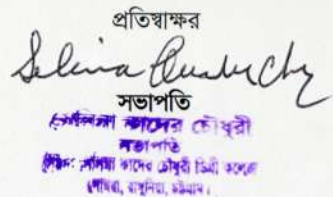 প্রতিস্বাক্ষর
Selina Quader Chy
সভাপতি
কাদের চৌধুরী
সভাপতি
কাদের চৌধুরী ডিগ্রী কলেজ
রাঙ্গুনিয়া, চট্টগ্রাম।